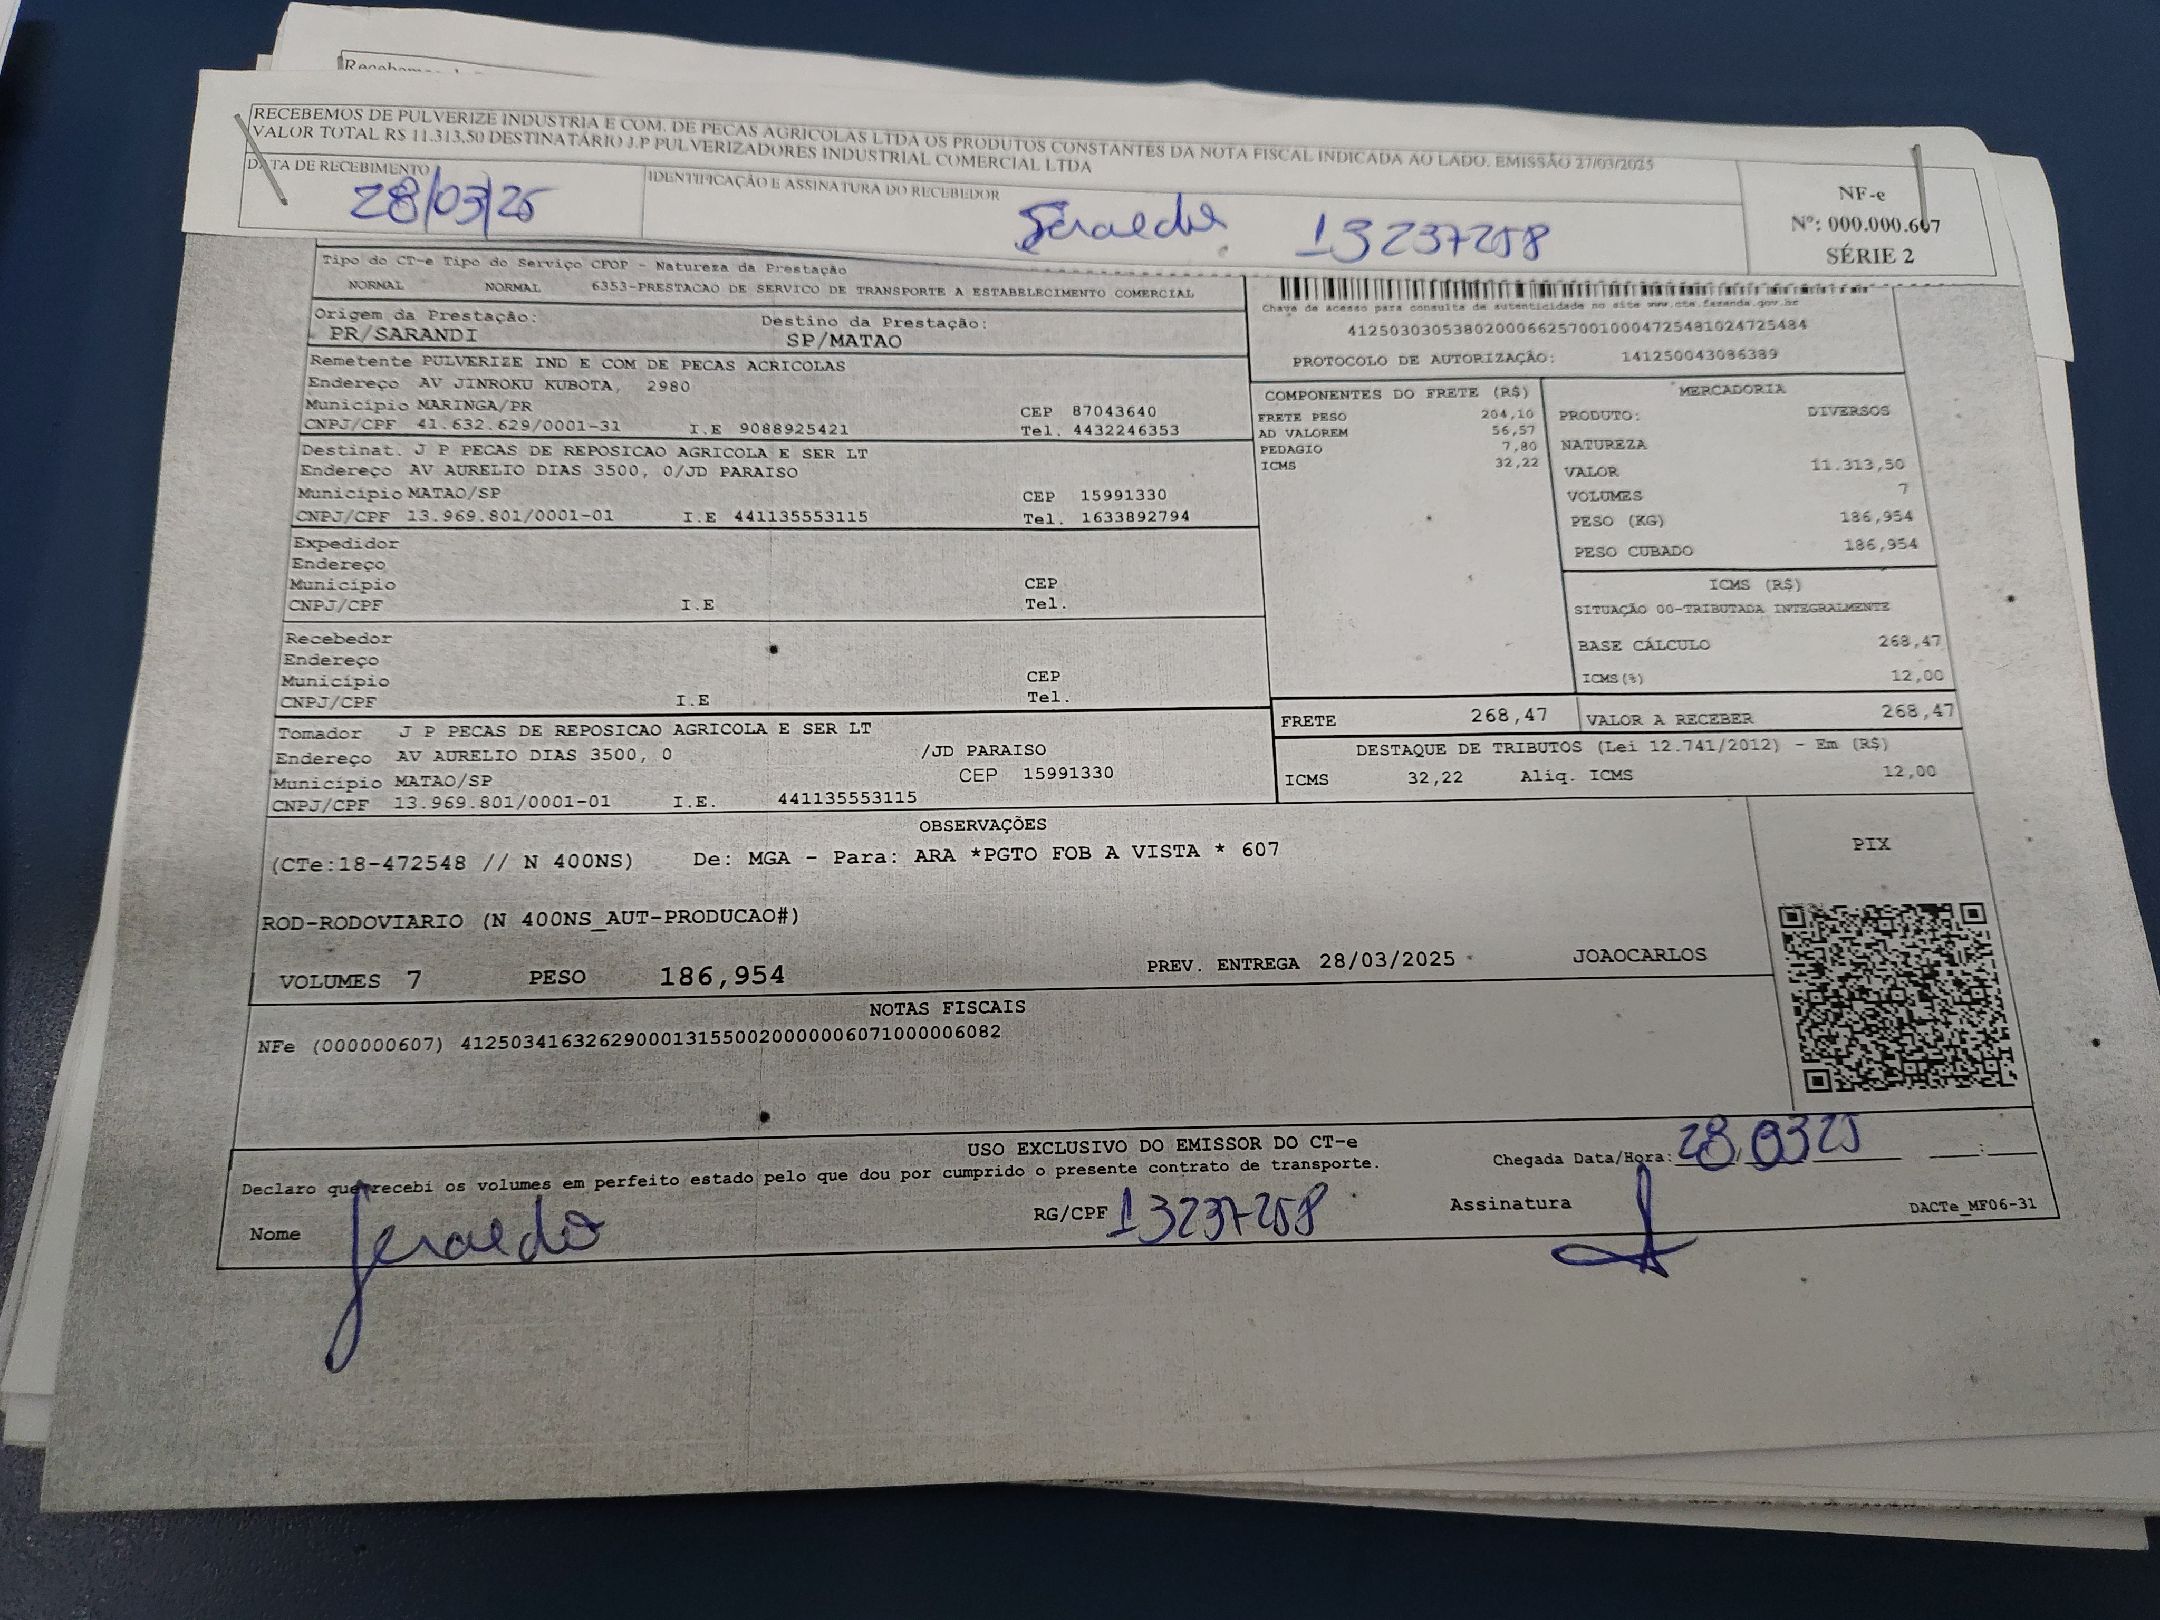 RECEBEMOS DE PULVERIZE INDUSTRIA E COM. DE PECAS AGRICOLAS LTDA OS PRODUTOS CONSTANTES DA NOTA FISCAL INDICADA AO LADO. EMISSÃO 27/03/2025
VALOR TOTAL R$ 11.313,50 DESTINATÁRIO J.P PULVERIZADORES INDUSTRIAL COMERCIAL LTDA
DATA DE RECEBIMENTO
28/03/25
IDENTIFICAÇÃO E ASSINATURA DO RECEBEDOR
Geraldo 13237258
NF-e
Nº: 000.000.607
SÉRIE 2
Tipo do CT-e Tipo do Serviço CFOP - Natureza da Prestação
NORMAL NORMAL 6353-PRESTACAO DE SERVICO DE TRANSPORTE A ESTABELECIMENTO COMERCIAL
Origem da Prestação: Destino da Prestação:
PR/SARANDI SP/MATAO
Chave de acesso para consulta de autenticidade no site www.cte.fazenda.gov.br
41250303053802000662570010004725481024725484
PROTOCOLO DE AUTORIZAÇÃO: 141250043086389
Remetente PULVERIZE IND E COM DE PECAS ACRICOLAS
Endereço AV JINROKU KUBOTA, 2980
Município MARINGA/PR CEP 87043640
CNPJ/CPF 41.632.629/0001-31 I.E 9088925421 Tel. 4432246353
Destinat. J P PECAS DE REPOSICAO AGRICOLA E SER LT
Endereço AV AURELIO DIAS 3500, 0/JD PARAISO
Município MATAO/SP CEP 15991330
CNPJ/CPF 13.969.801/0001-01 I.E 441135553115 Tel. 1633892794
Expedidor
Endereço
Município CEP
CNPJ/CPF I.E Tel.
Recebedor
Endereço
Município CEP
CNPJ/CPF I.E Tel.
Tomador J P PECAS DE REPOSICAO AGRICOLA E SER LT
Endereço AV AURELIO DIAS 3500, 0 /JD PARAISO
Município MATAO/SP CEP 15991330
CNPJ/CPF 13.969.801/0001-01 I.E. 441135553115
COMPONENTES DO FRETE (R$)
FRETE PESO 204,10
AD VALOREM 56,57
PEDAGIO 7,80
ICMS 32,22
MERCADORIA
PRODUTO: DIVERSOS
NATUREZA
VALOR 11.313,50
VOLUMES 7
PESO (KG) 186,954
PESO CUBADO 186,954
ICMS (R$)
SITUAÇÃO 00-TRIBUTADA INTEGRALMENTE
BASE CÁLCULO 268,47
ICMS(%) 12,00
FRETE 268,47 VALOR A RECEBER 268,47
DESTAQUE DE TRIBUTOS (Lei 12.741/2012) - Em (R$)
ICMS 32,22 Aliq. ICMS 12,00
OBSERVAÇÕES
(CTe:18-472548 // N 400NS) De: MGA - Para: ARA *PGTO FOB A VISTA * 607
ROD-RODOVIARIO (N 400NS_AUT-PRODUCAO#)
VOLUMES 7 PESO 186,954 PREV. ENTREGA 28/03/2025 JOAOCARLOS
PIX
NOTAS FISCAIS
NFe (000000607) 41250341632629000131550020000006071000006082
USO EXCLUSIVO DO EMISSOR DO CT-e
Declaro que recebi os volumes em perfeito estado pelo que dou por cumprido o presente contrato de transporte.
Chegada Data/Hora: 28 03 25
Nome Geraldo RG/CPF 13237258 Assinatura
DACTe_MF06-31